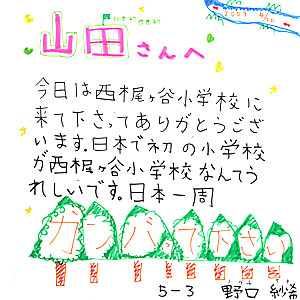 山田さんへ
今日は西梶ヶ谷小学校に
来て下さってありがとうござ
います。日本で初の小学校
が西梶ヶ谷小学校なんてう
れしいです。日本一周
ガンバって下さい
5-3 野口 紗希